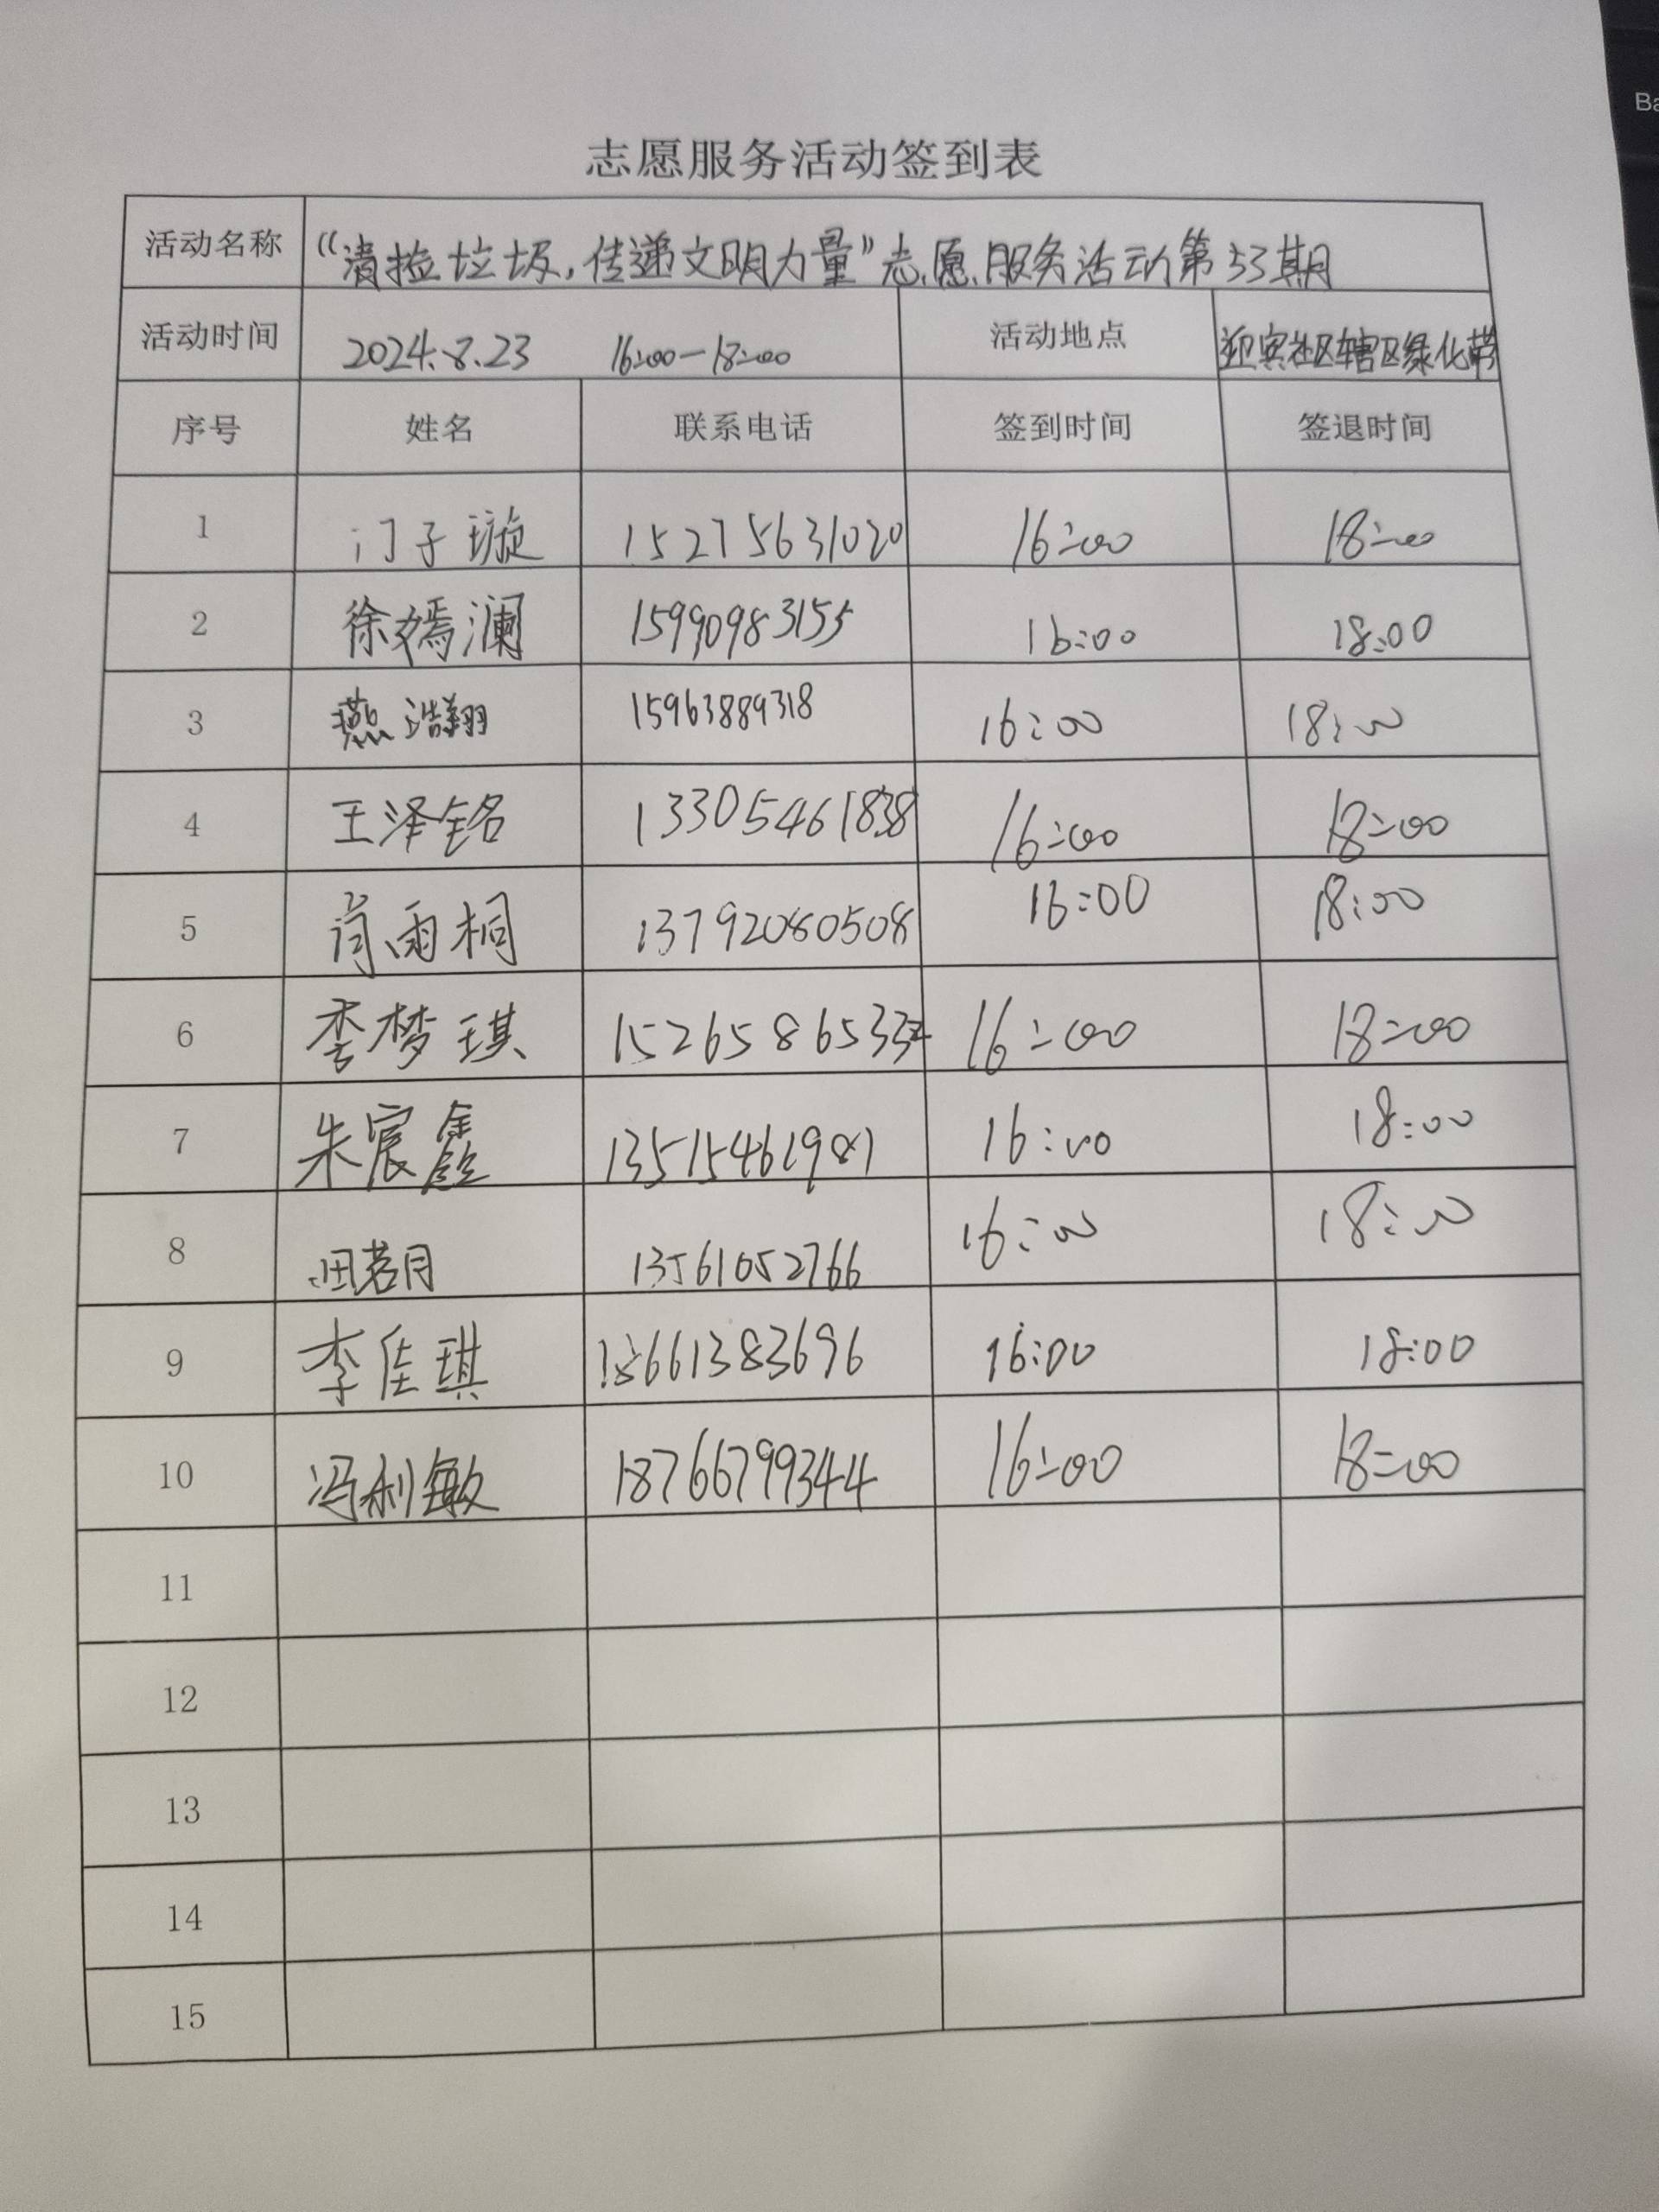 Ba
志愿服务活动签到表
活动名称 “清捡垃圾，传递文明力量”志愿服务活动第53期
活动时间 2024.8.23 16:00—18:00 活动地点 迎宾社区辖区绿化带
序号 姓名 联系电话 签到时间 签退时间
1 门子璇 15275631020 16:00 18:00
2 徐嫣澜 15990983155 16:00 18:00
3 燕浩翔 15963889318 16:00 18:00
4 王泽铭 13305461838 16:00 18:00
5 肖雨桐 13792080508 16:00 18:00
6 李梦琪 16:00 18:00
7 朱宸鑫 13515461981 16:00 18:00
8 田茗月 13561052766 16:00 18:00
9 李佳琪 18661383696 16:00 18:00
10 冯利敏 18766799344 16:00 18:00
11
12
13
14
15